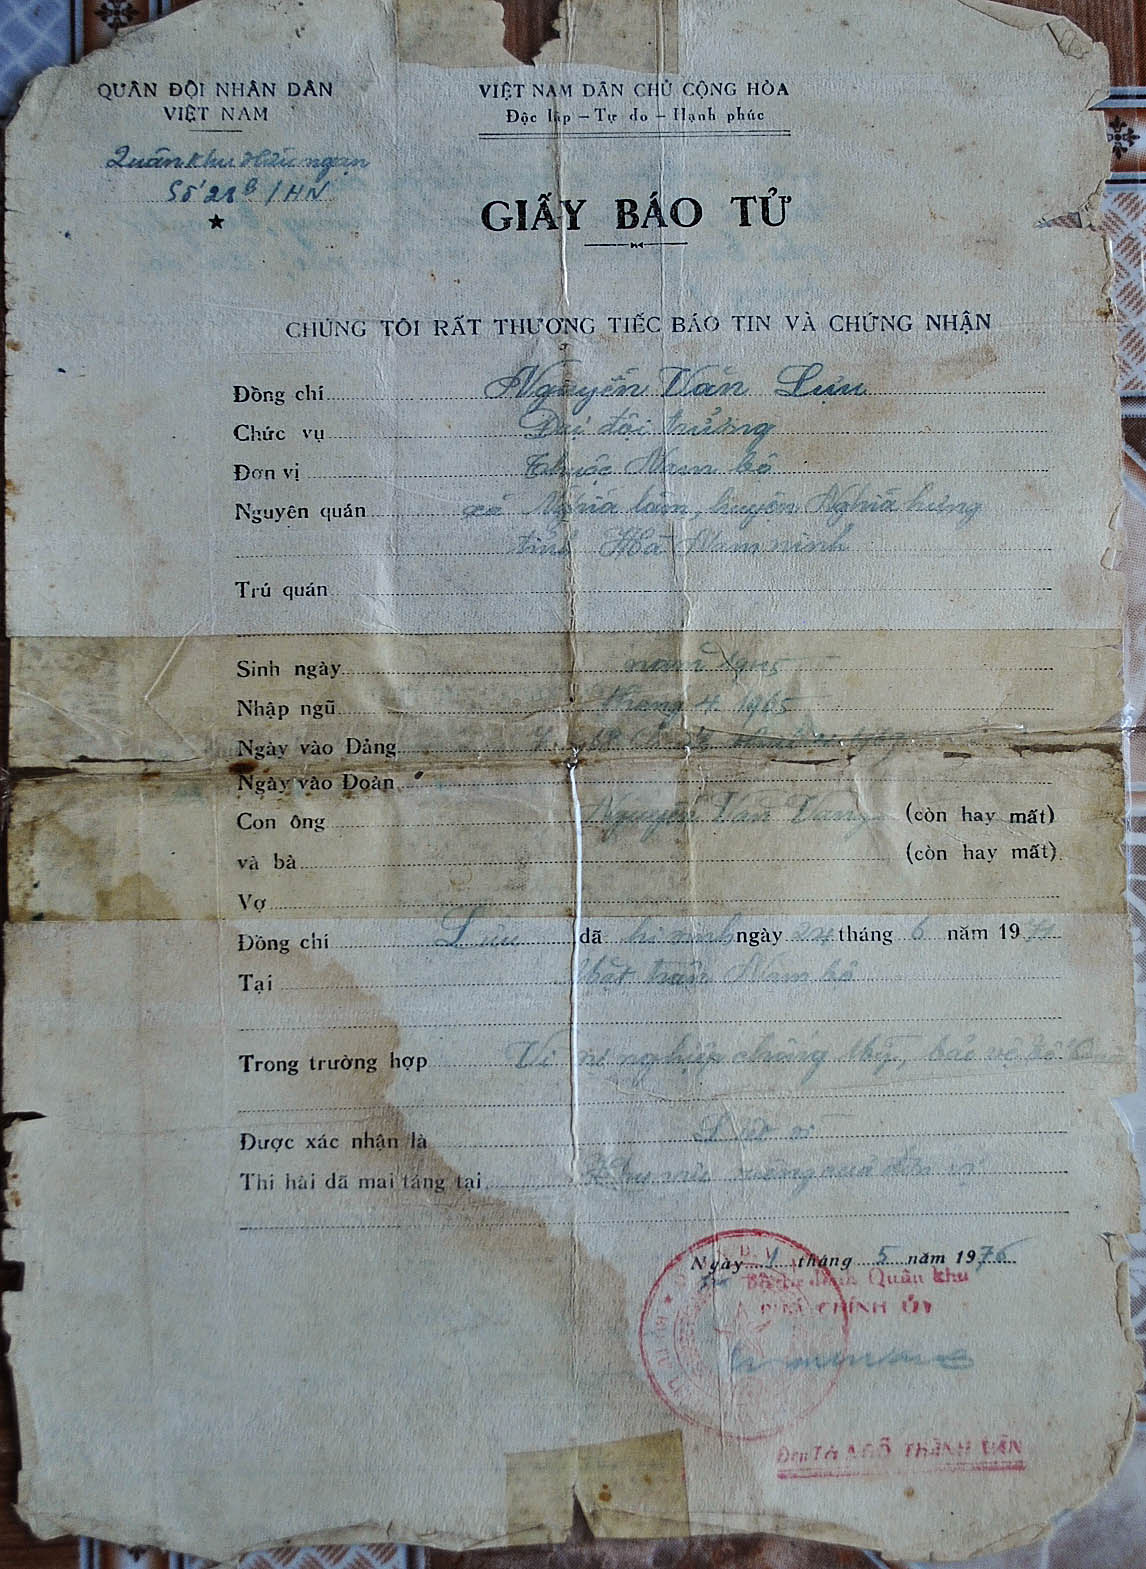 QUÂN ĐỘI NHÂN DÂN
VIỆT NAM
Quân khu Hữu ngạn
Số 21B / HN
★
VIỆT NAM DÂN CHỦ CỘNG HÒA
Độc lập – Tự do – Hạnh phúc
GIẤY BÁO TỬ
CHÚNG TÔI RẤT THƯƠNG TIẾC BÁO TIN VÀ CHỨNG NHẬN
Đồng chí Nguyễn Văn Lựu
Chức vụ Đại đội trưởng
Đơn vị Thuộc Nam bộ
Nguyên quán xã Nghĩa lâm, huyện Nghĩa hưng
tỉnh Hà Nam ninh
Trú quán
Sinh ngày năm 1945
Nhập ngũ tháng 4 1965
Ngày vào Đảng
Ngày vào Đoàn
Con ông Nguyễn Văn Vang (còn hay mất)
và bà (còn hay mất)
Vợ
Đồng chí Lựu đã hi sinh ngày 24 tháng 6 năm 1971
Tại Mặt trận Nam bộ
Trong trường hợp Vì sự nghiệp chống Mỹ, bảo vệ tổ
Được xác nhận là Liệt sĩ
Thi hài đã mai táng tại Khu mộ riêng của đơn vị
Ngày 1 tháng 5 năm 1976
Bộ tư lệnh Quân khu
PHÓ CHÍNH ỦY
Đại Tá NGÔ THÀNH VÂN